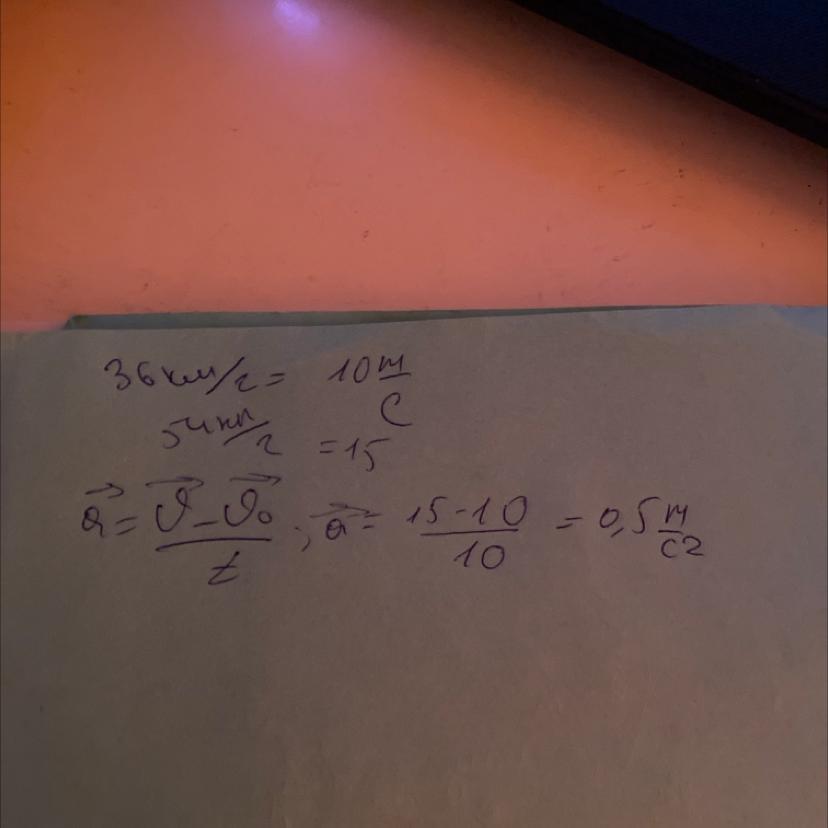 36км/г = 10 м/с
54км/г = 15
a⃗ = (v⃗ - v⃗₀)/t ; a⃗ = (15-10)/10 = 0,5 м/с2